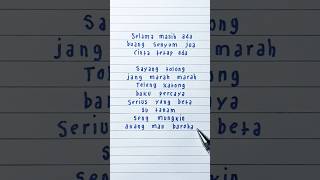 Selama masih ada
buang senyum jua
cinta tetap ada
Sayang tolong
jang marah marah
Tolong katong
baku percaya
Serius yang beta
su tanam
seng mungkin
buang mau baroba